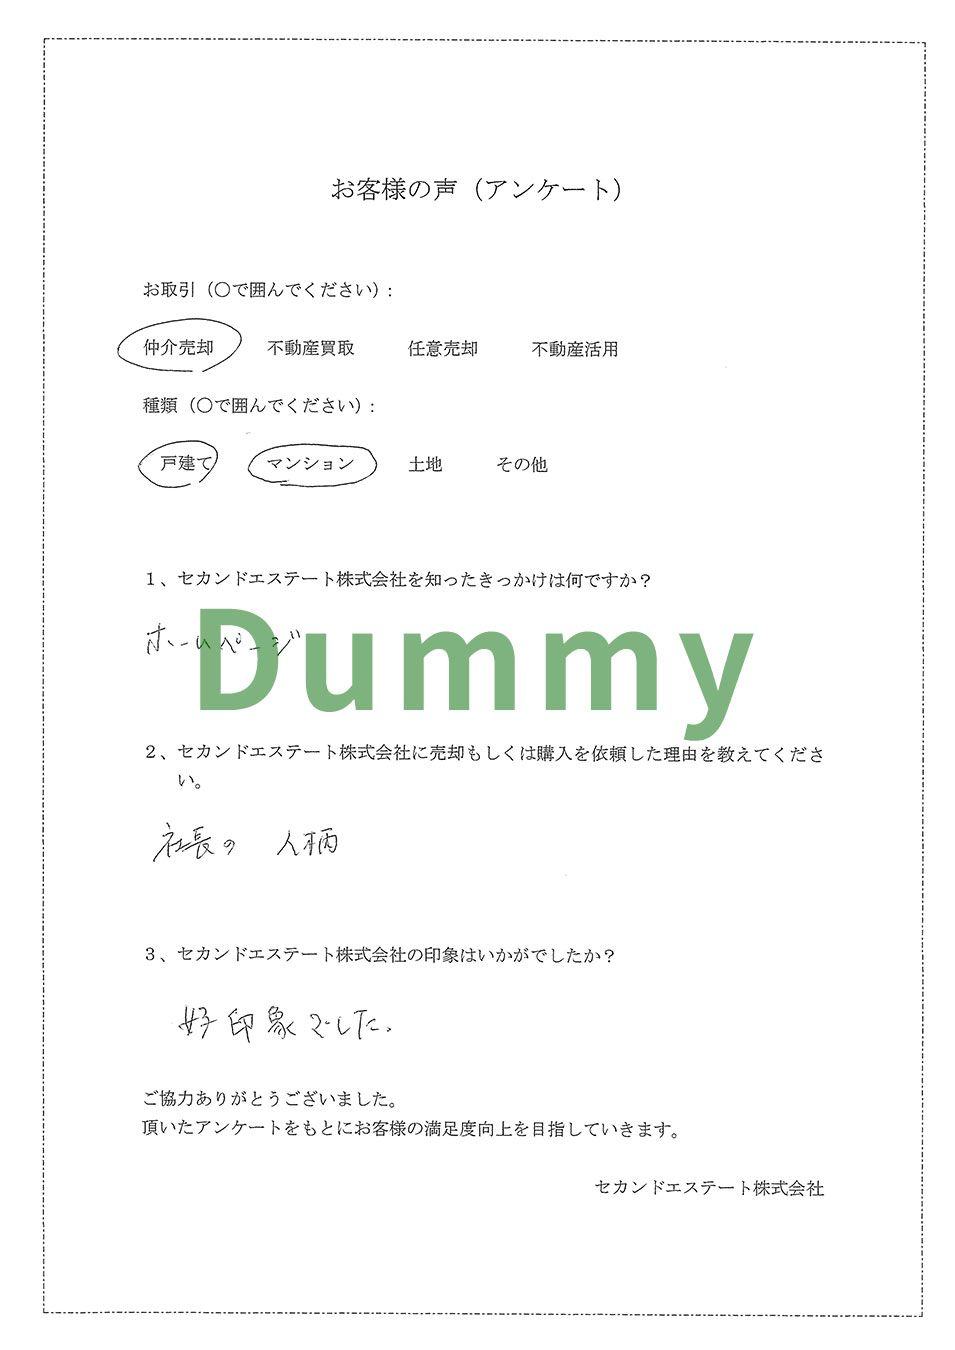 お客様の声（アンケート）
お取引（〇で囲んでください）：
仲介売却 不動産買取 任意売却 不動産活用
種類（〇で囲んでください）：
戸建て マンション 土地 その他
１、セカンドエステート株式会社を知ったきっかけは何ですか？
ホームページ
Dummy
２、セカンドエステート株式会社に売却もしくは購入を依頼した理由を教えてくださ
い。
社長の 人柄
３、セカンドエステート株式会社の印象はいかがでしたか？
好印象でした。
ご協力ありがとうございました。
頂いたアンケートをもとにお客様の満足度向上を目指していきます。
セカンドエステート株式会社